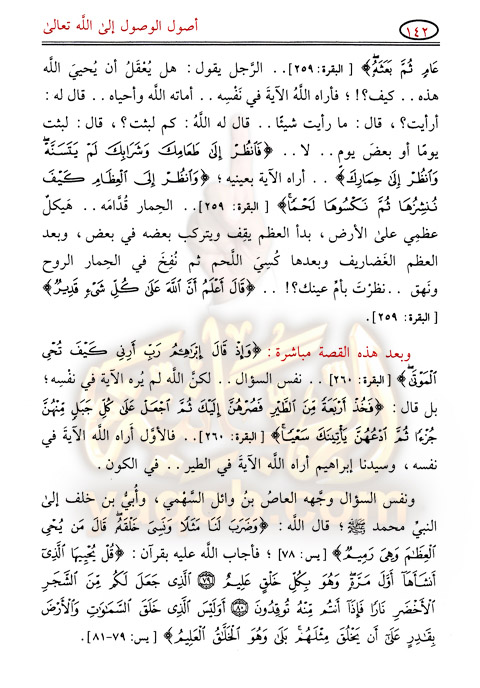 ١٤٢
أصول الوصول إلى اللَّه تعالى
عَامٍ ثُمَّ بَعَثَهُۥ﴾ [البقرة: ٢٥٩].. الرَّجل يقول : هل يُعْقَلُ أن يُحييَ اللَّه
هذه .. كيف؟! ؛ فأراه اللَّهُ الآيةَ في نَفْسِه .. أماته اللَّه وأحياه .. قال له :
أرأيت؟ ، قال : ما رأيت شيئًا .. قال له اللَّهُ : كم لبثت؟ ، قال : لبثت
يومًا أو بعضَ يوم .. لا .. ﴿فَٱنظُرْ إِلَىٰ طَعَامِكَ وَشَرَابِكَ لَمْ يَتَسَنَّهْ
وَٱنظُرْ إِلَىٰ حِمَارِكَ﴾ .. أراه الآية بعينيه ؛ ﴿وَٱنظُرْ إِلَى ٱلْعِظَامِ كَيْفَ
نُنشِزُهَا ثُمَّ نَكْسُوهَا لَحْمًا﴾ [البقرة: ٢٥٩].. الحِمار قُدَّامَه .. هَيكلٌ
عظمِي على الأرض ، بدأ العظم يقِف ويتركب بعضه في بعض ، وبعد
العظم الغضاريف وبعدها كُسِيَ اللَّحم ثم نُفِخَ في الحِمار الروح
ونَهق .. نظرْتَ بأمِّ عينك؟! .. ﴿قَالَ أَعْلَمُ أَنَّ ٱللَّهَ عَلَىٰ كُلِّ شَىْءٍ قَدِيرٌ﴾
[البقرة: ٢٥٩].
وبعد هذه القصة مباشرة : ﴿وَإِذْ قَالَ إِبْرَٰهِـۧمُ رَبِّ أَرِنِى كَيْفَ تُحْىِ
ٱلْمَوْتَىٰ﴾ [البقرة: ٢٦٠].. نفس السؤال .. لكنَّ اللَّه لم يُره الآية في نفسِه ؛
بل قال : ﴿فَخُذْ أَرْبَعَةً مِّنَ ٱلطَّيْرِ فَصُرْهُنَّ إِلَيْكَ ثُمَّ ٱجْعَلْ عَلَىٰ كُلِّ جَبَلٍ مِّنْهُنَّ
جُزْءًا ثُمَّ ٱدْعُهُنَّ يَأْتِينَكَ سَعْيًا﴾ [البقرة: ٢٦٠].. فالأوَّل أراه اللَّه الآية في
نفسه ، وسيدنا إبراهيم أراه اللَّه الآيةَ في الطير .. في الكون .
ونفس السؤال وجَّهه العاصُ بنُ وائل السَّهْمي ، وأُبيُّ بن خلف إلىٰ
النبيِّ محمد ﷺ ؛ قال اللَّه : ﴿وَضَرَبَ لَنَا مَثَلًا وَنَسِىَ خَلْقَهُۥ قَالَ مَن يُحْىِ
ٱلْعِظَٰمَ وَهِىَ رَمِيمٌ﴾ [يس: ٧٨] ؛ فأجاب اللَّه عليه بقرآن : ﴿قُلْ يُحْيِيهَا ٱلَّذِىٓ
أَنشَأَهَآ أَوَّلَ مَرَّةٍ وَهُوَ بِكُلِّ خَلْقٍ عَلِيمٌ ۝٧٩ ٱلَّذِى جَعَلَ لَكُم مِّنَ ٱلشَّجَرِ
ٱلْأَخْضَرِ نَارًا فَإِذَآ أَنتُم مِّنْهُ تُوقِدُونَ ۝٨٠ أَوَلَيْسَ ٱلَّذِى خَلَقَ ٱلسَّمَٰوَٰتِ وَٱلْأَرْضَ
بِقَٰدِرٍ عَلَىٰٓ أَن يَخْلُقَ مِثْلَهُم بَلَىٰ وَهُوَ ٱلْخَلَّٰقُ ٱلْعَلِيمُ﴾ [يس: ٧٩-٨١].